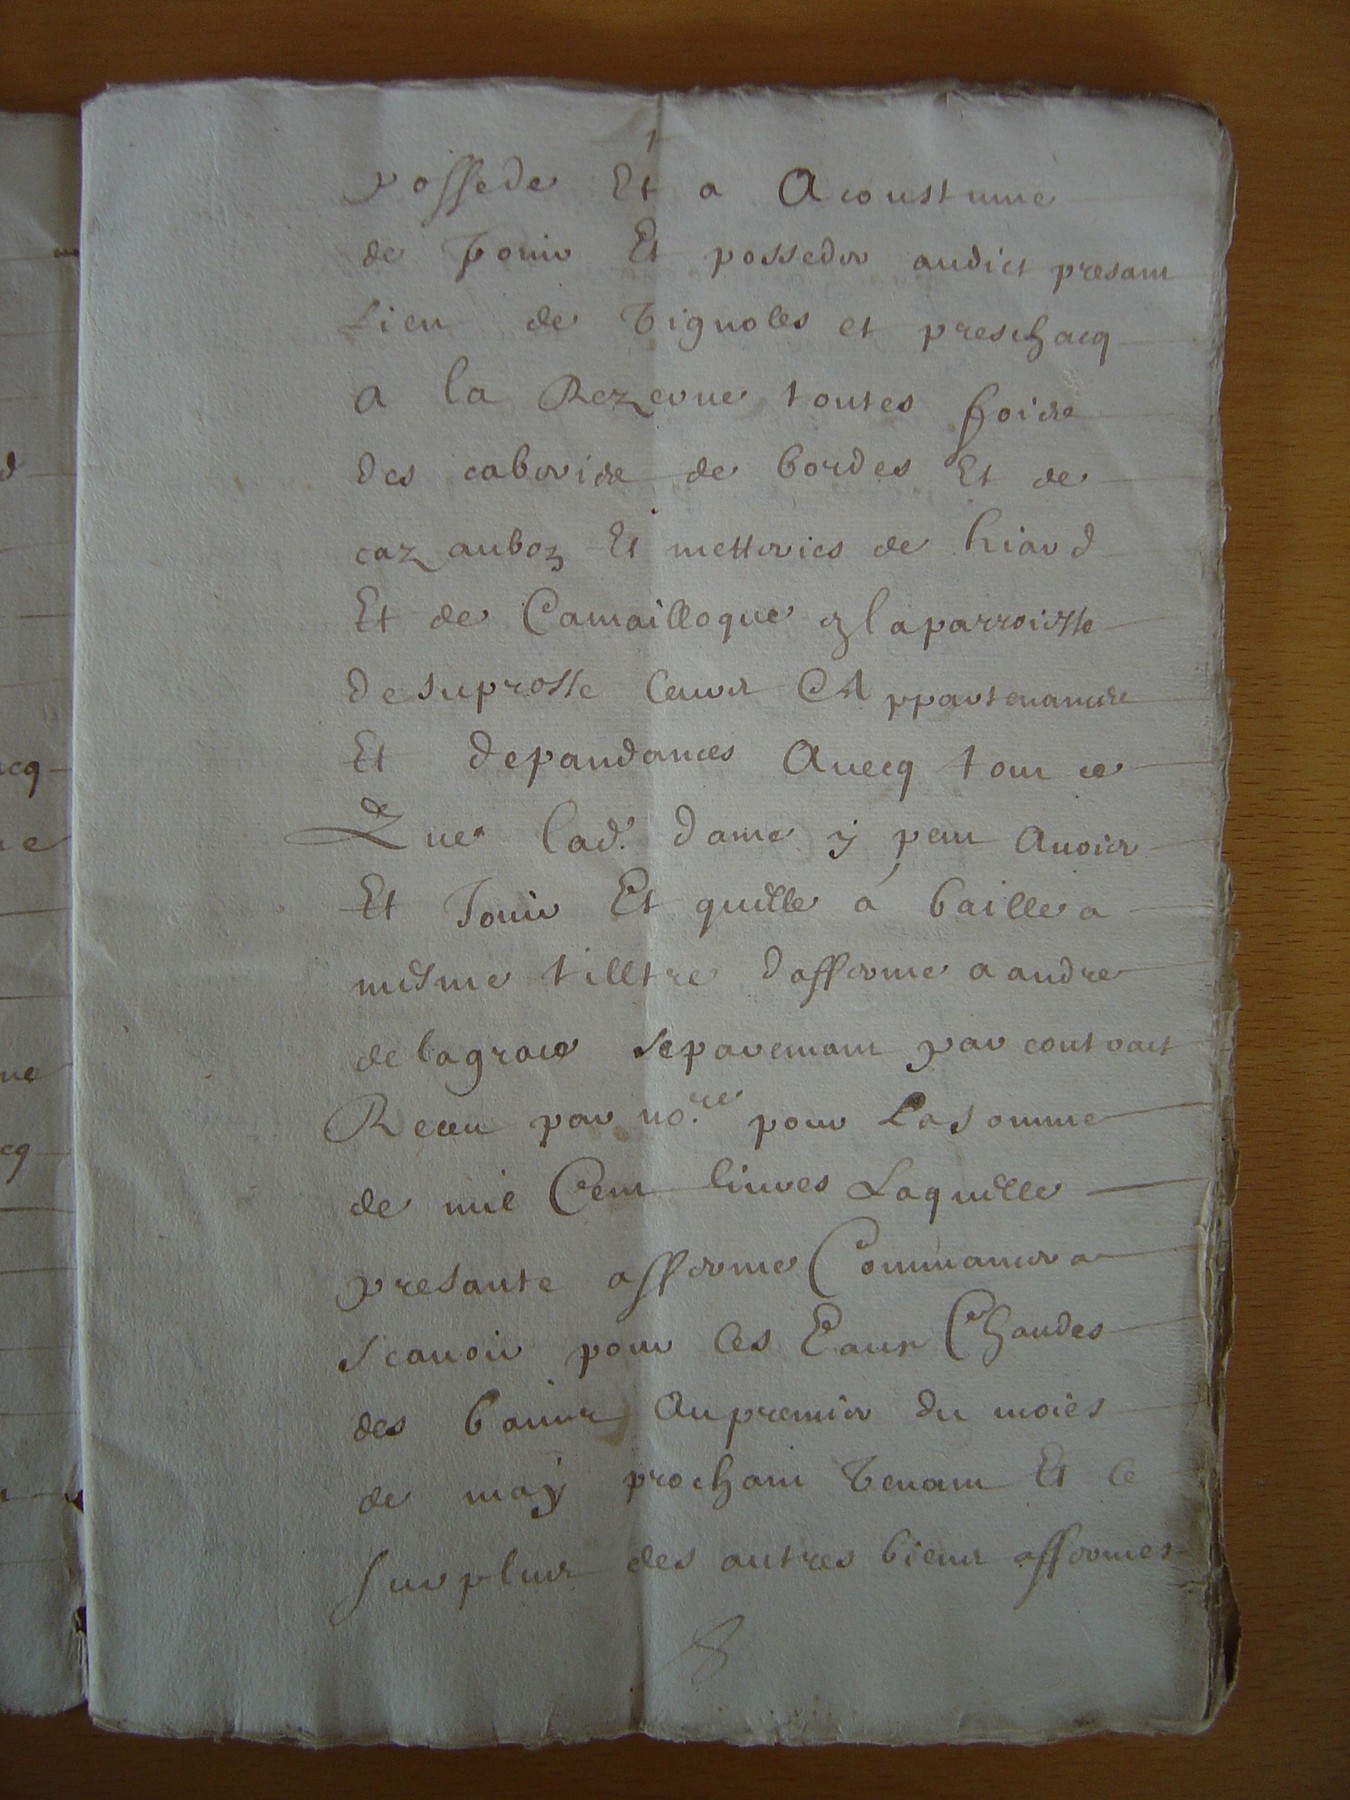 possede Et a Acoustume
de Jouir Et posseder audict presant
Lieu de Vignoles et preschacq
a la Rezerue toutes foix
des de bordes Et de
cazaubon Et metteries de hiard
Et de Camailloque en la parroisse
de suprosse leurs Appartenances
Et depandances Auecq tout ce
Que lad. dame y peut Auoir
Et Jouir Et quelle a baille a
mesme tilltre dafferme a andre
de lagrace separemant par contract
Receu par no.re pour La somme
de mil Cent liures Laquelle
presante afferme Commancera
scauoir pour les Eaux Chaudes
des bains Au premier du mois
de may prochain Venant Et le
surplus des autres biens affermes